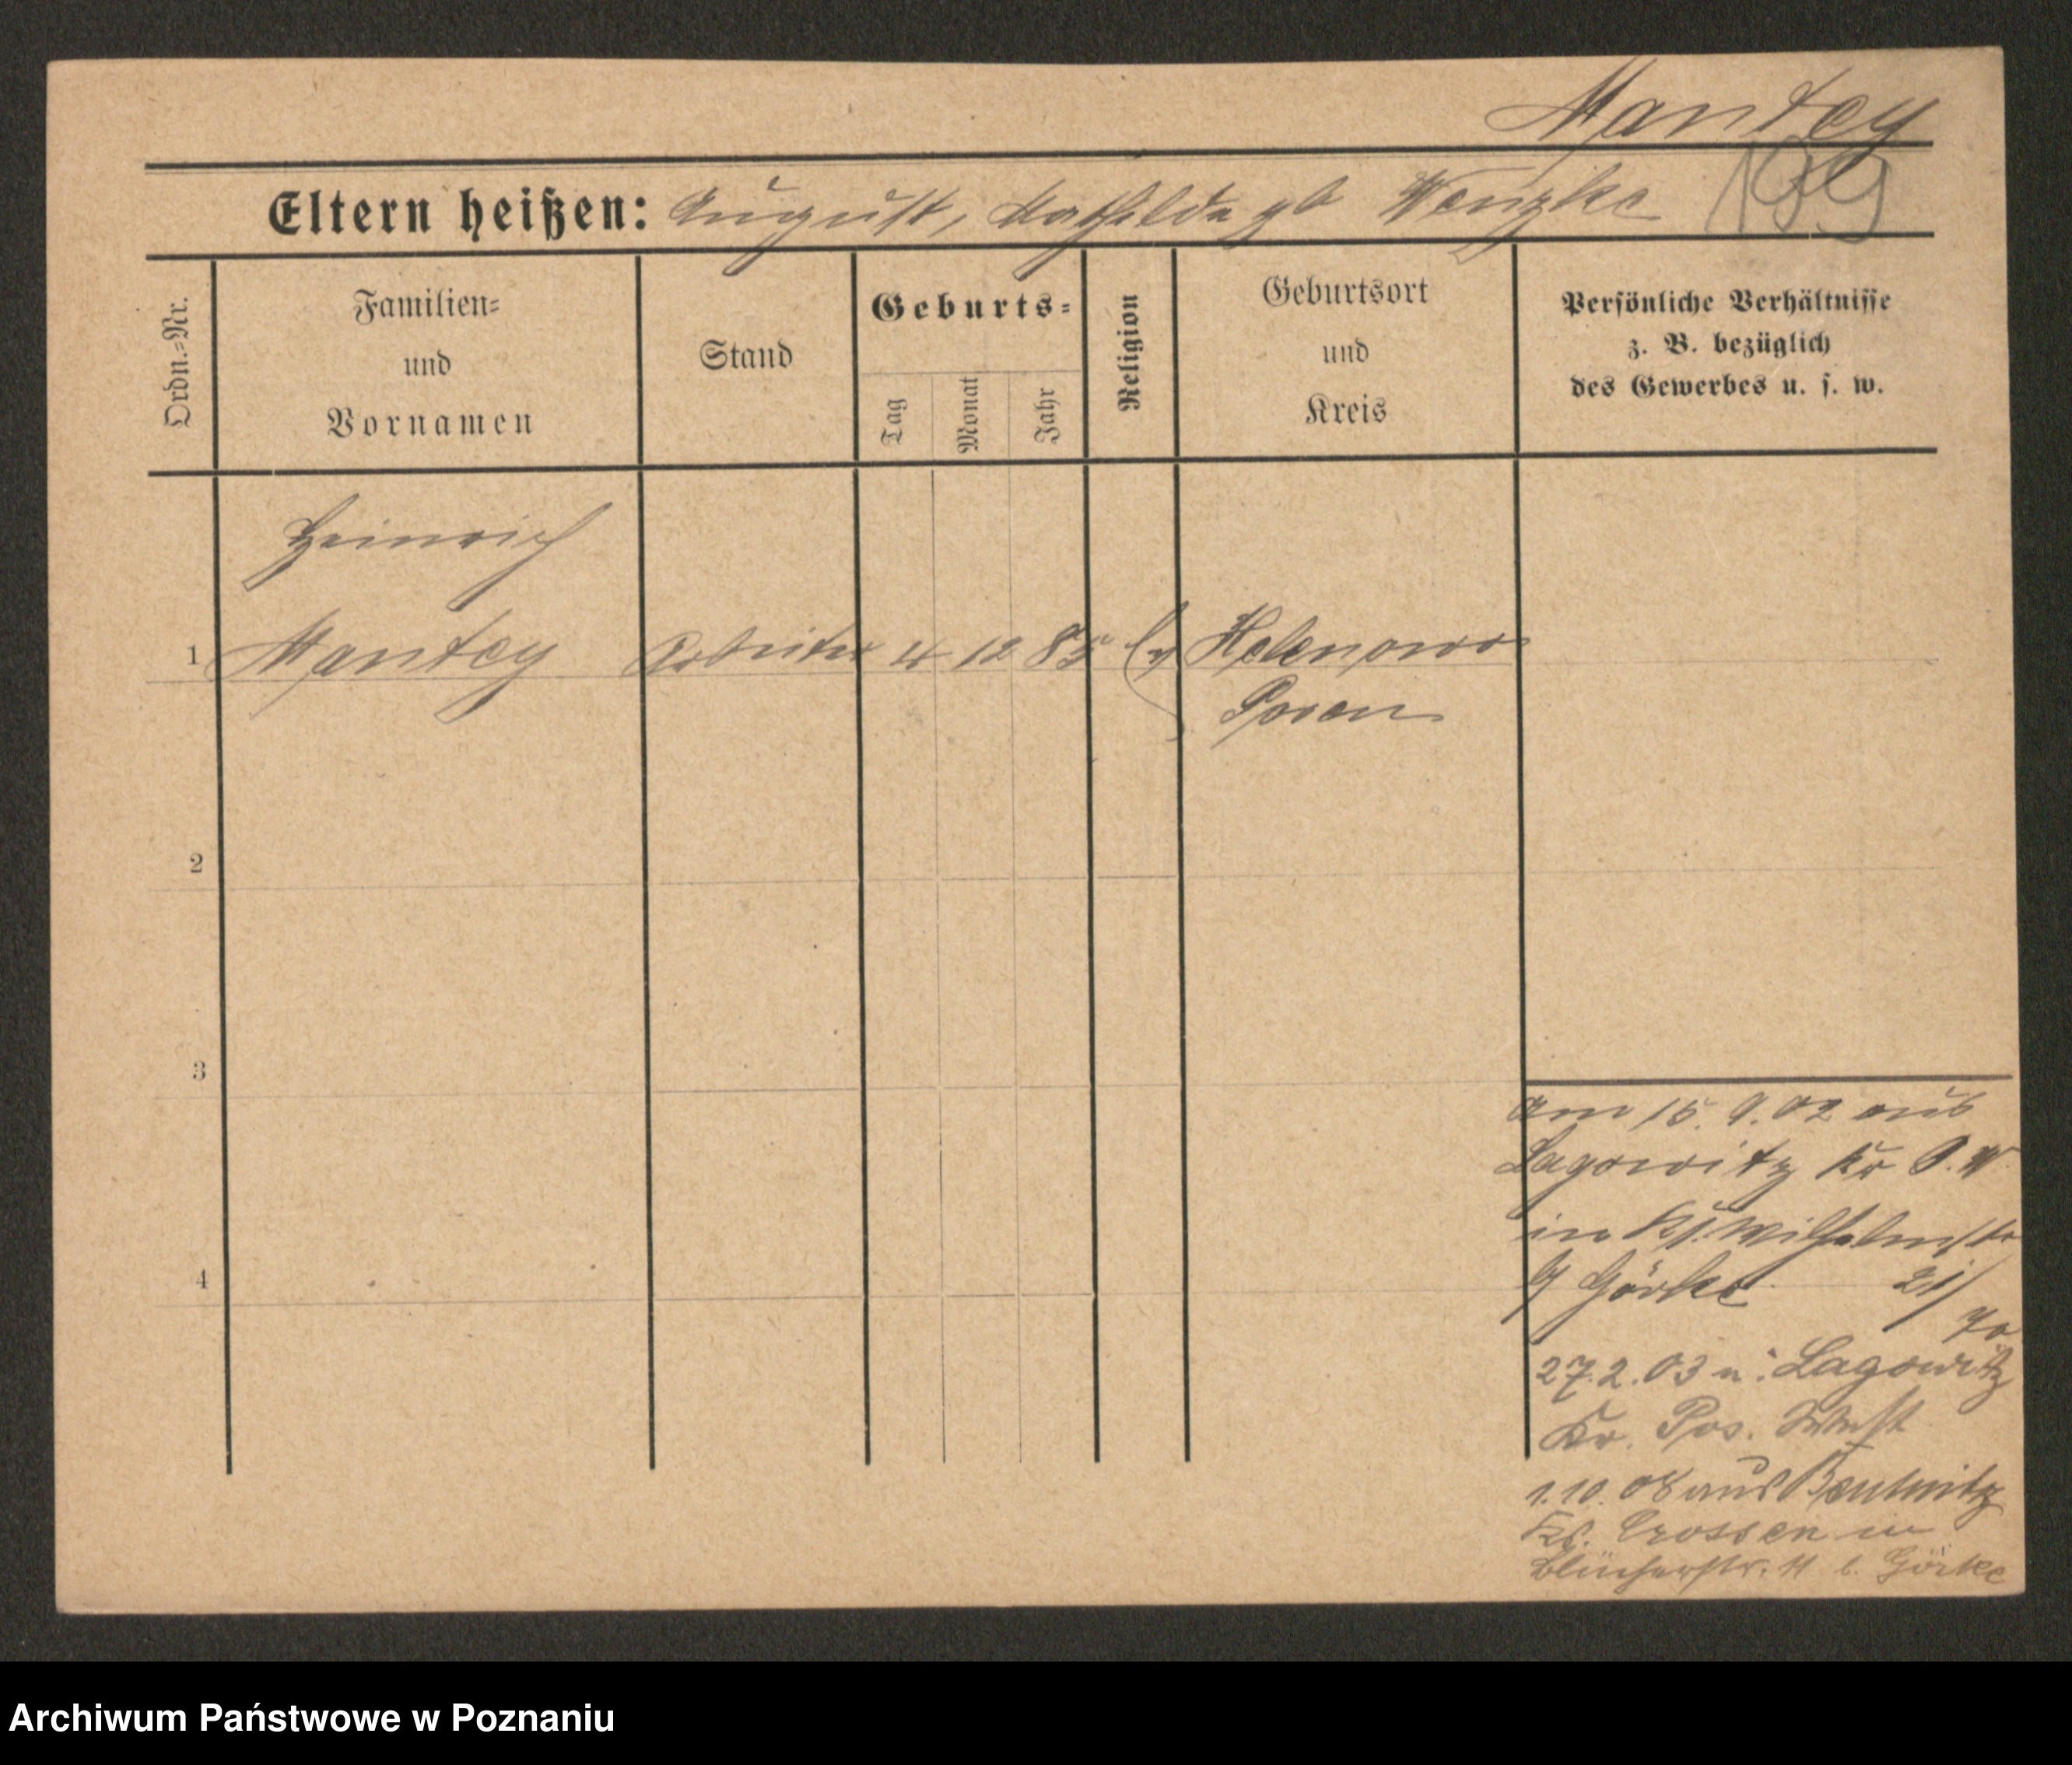 Mantey
Eltern heißen: August, Mathilde gb Wenzke
Ordn.=Nr.
Familien=
und
Vornamen
Stand
Geburts=
Tag
Monat
Jahr
Religion
Geburtsort
und
Kreis
Persönliche Verhältnisse
z. B. bezüglich
des Gewerbes u. s. w.
Heinrich
1 Mantey Arbeiter 4 12 85 Ev Helenowo
Posen
2
3
4
Am 15. 9. 02 aus
Lagowitz Kr P. W.
in Wilhelmstr
Görke 21/
27.2.03 n. Lagowitz
Kr. Pos. West
1.10.08 aus Beutnitz
Kr. Crossen in
Blücherstr. 11 b. Görke
Archiwum Państwowe w Poznaniu